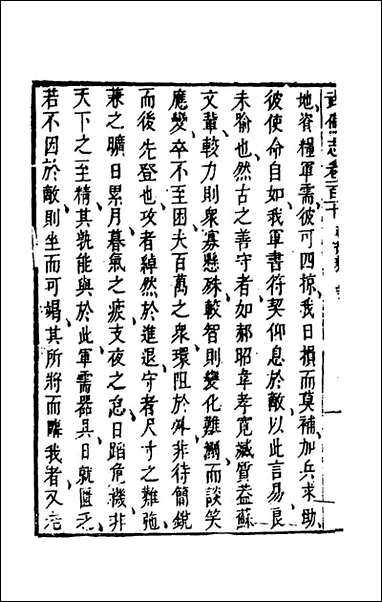 武備志卷一百十
地資糧軍需彼可四掠我日損而莫補加兵求助
彼使命自如我軍書符契仰息於敵以此言易良
未喻也然古之善守者如郝昭韋孝寬臧質蓋蘇
文輩較力則衆寡懸殊較智則變化難測而談笑
應變卒不至困夫百萬之衆環阻於外非待簡銳
而後先登也攻者綽然於進退守者尺寸之難弛
兼之曠日累月暮氣之疲支夜之怠日蹈危機非
天下之至精其孰能與於此軍需器具日就匱乏
若不因於敵則坐而可竭其所將而賺我者又